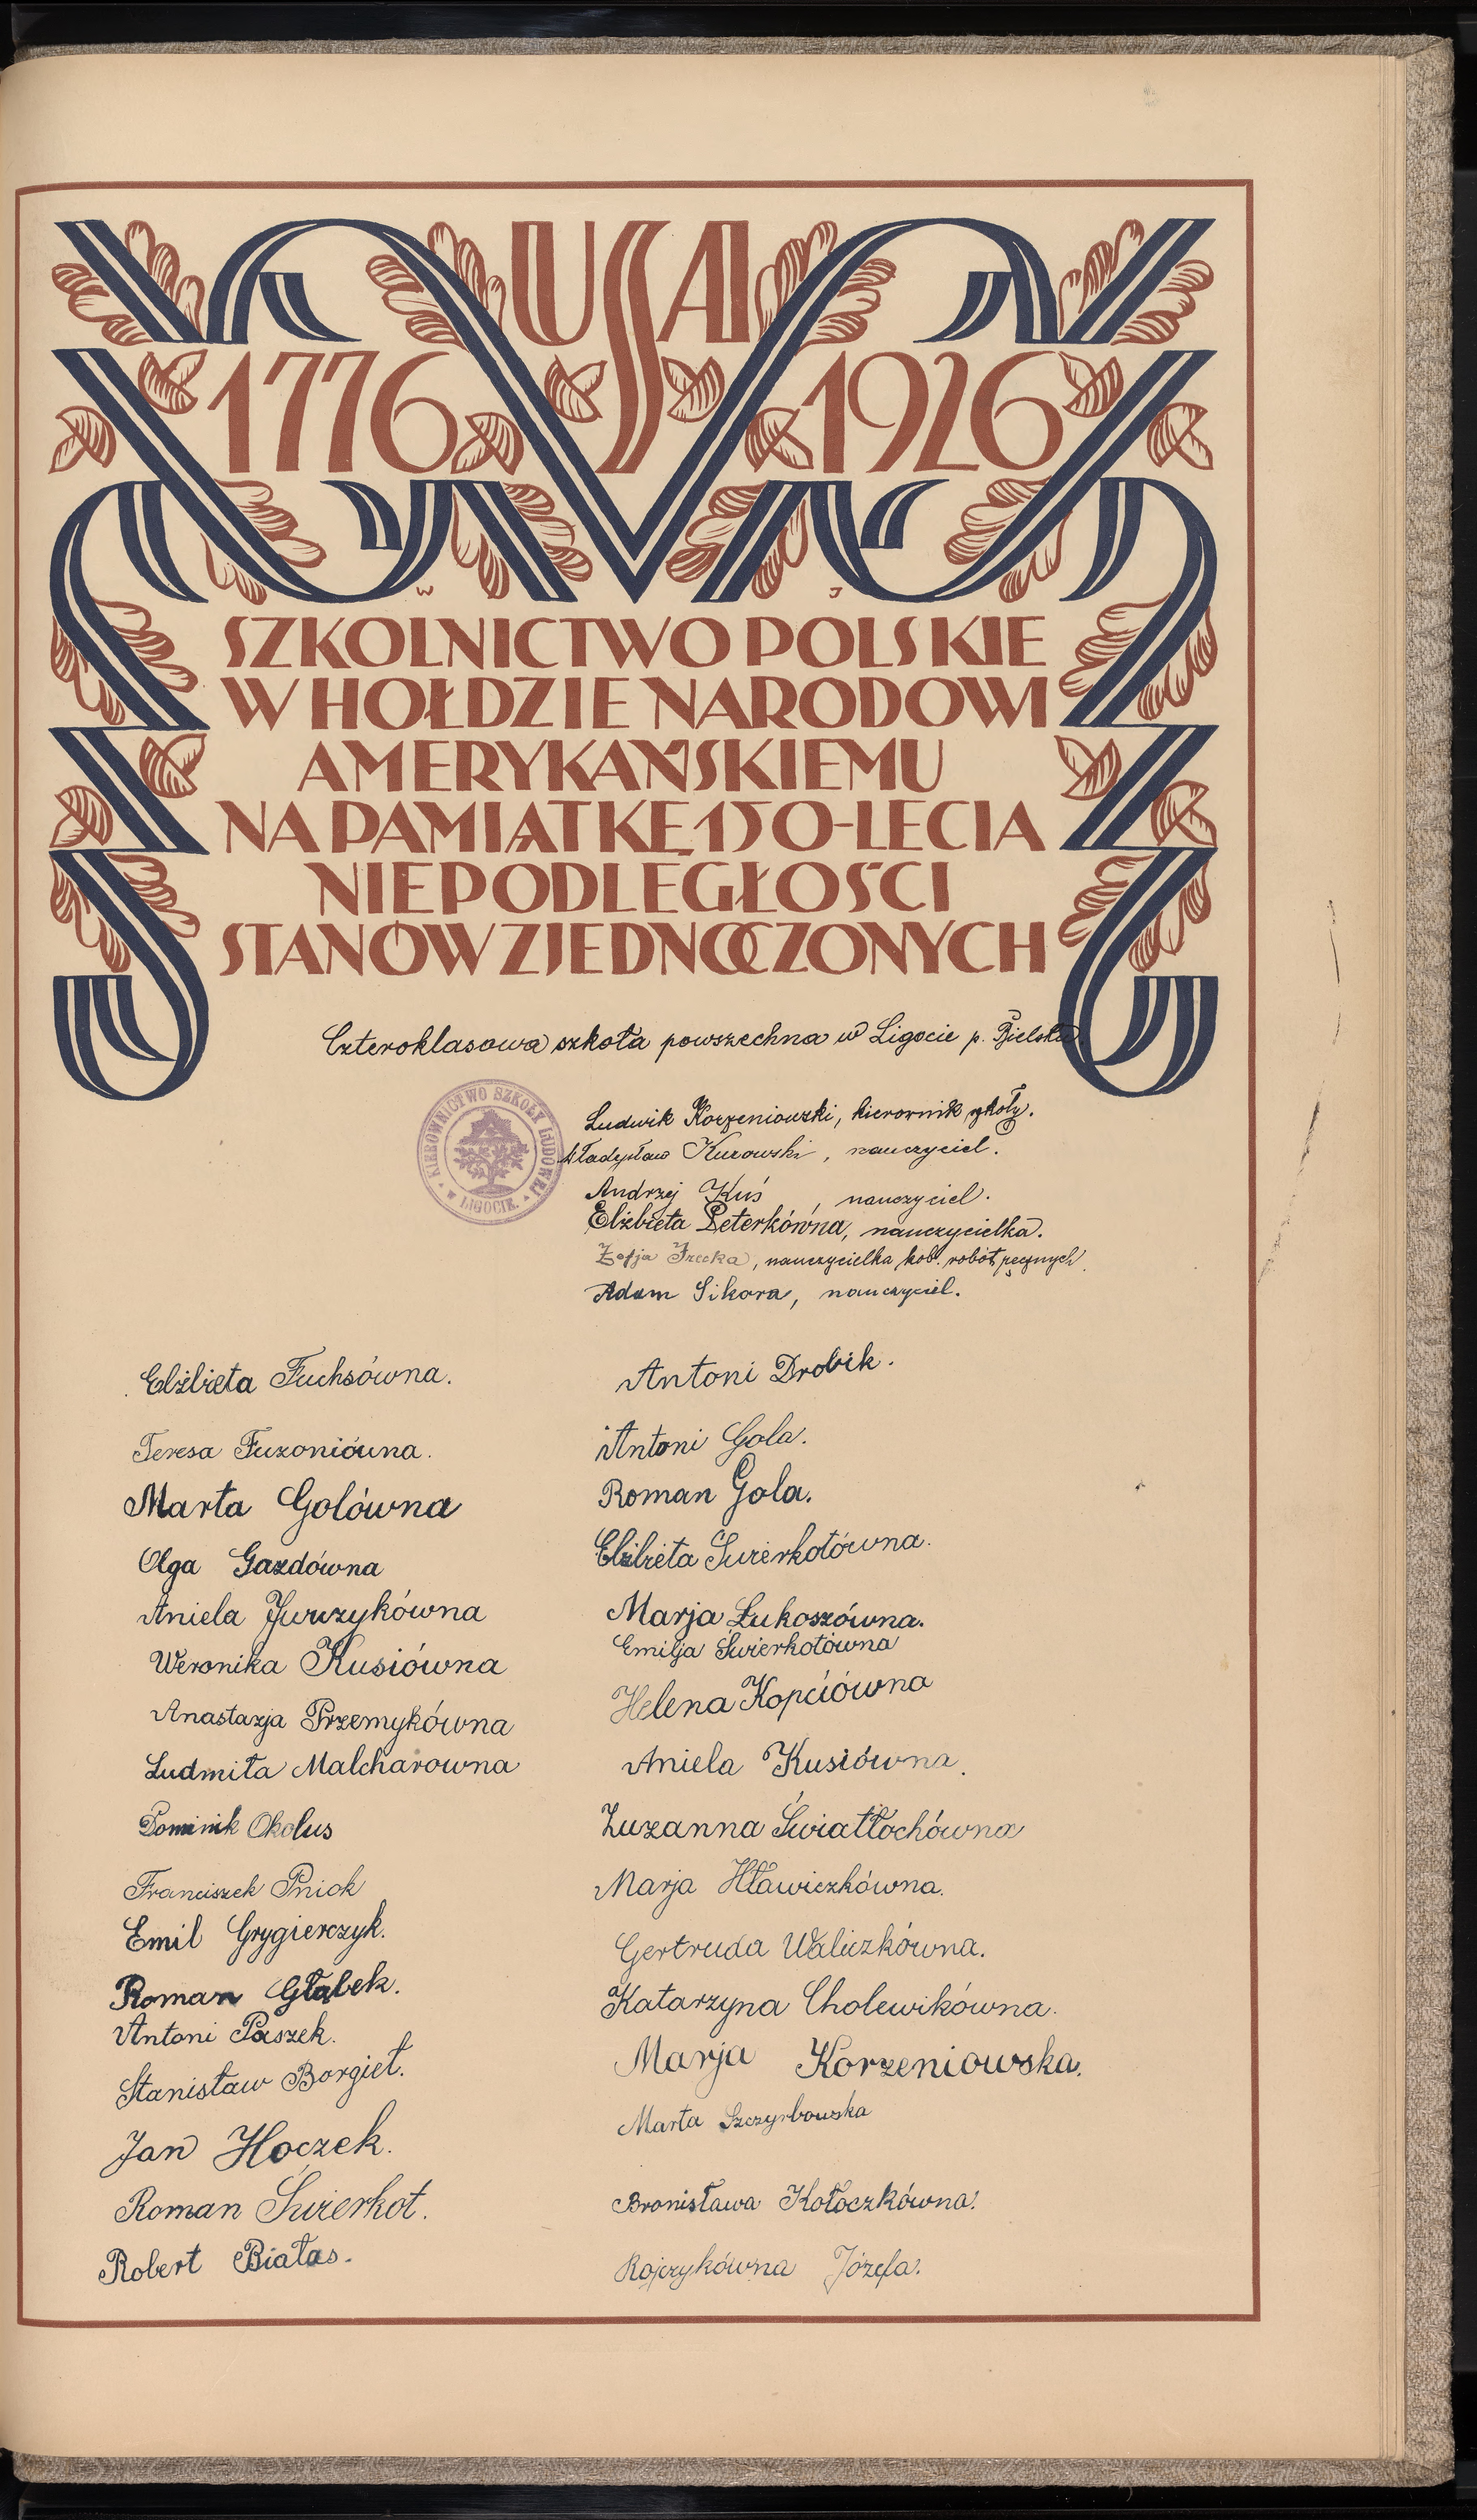 USA
1776 1926
W J
SZKOLNICTWO POLSKIE
W HOŁDZIE NARODOWI
AMERYKAŃSKIEMU
NA PAMIĄTKĘ 150-LECIA
NIEPODLEGŁOŚCI
STANÓW ZJEDNOCZONYCH
Czteroklasowa szkoła powszechna w Ligocie p. Bielsko.
KIEROWNICTWO SZKOŁY LUDOWEJ
* W LIGOCIE. *
Ludwik Korzeniowski, kierownik szkoły.
Władysław Kurowski, nauczyciel.
Andrzej Kuś, nauczyciel.
Elżbieta Peterkówna, nauczycielka.
Zofja, nauczycielka kob. robót ręcznych.
Adam Sikora, nauczyciel.
Elżbieta Fuchsówna.
Teresa Fuzoniówna.
Marta Golówna
Olga Gazdówna
Aniela Jurczykówna
Weronika Kusiówna
Anastazja Przemykówna
Ludmiła Malcharowna
Dominik Okolus
Franciszek Pniok
Emil Grygierczyk.
Roman Głąbek.
Antoni Paszek.
Stanisław Borgieł.
Jan Hoczek.
Roman Świerkot.
Robert Białas.
Antoni Drobik.
Antoni Gola.
Roman Gola.
Elżbieta Świerkotówna.
Marja Łukoszówna.
Emilja Świerkotówna
Helena Kopciówna
Aniela Kusiówna.
Zuzanna Światłochówna
Marja Hławiczkówna.
Gertruda Waliczkówna.
Katarzyna Cholewikówna.
Marja Korzeniowska.
Marta Szczyrbowska
Bronisława Kołoczkówna.
Rojczykówna Józefa.